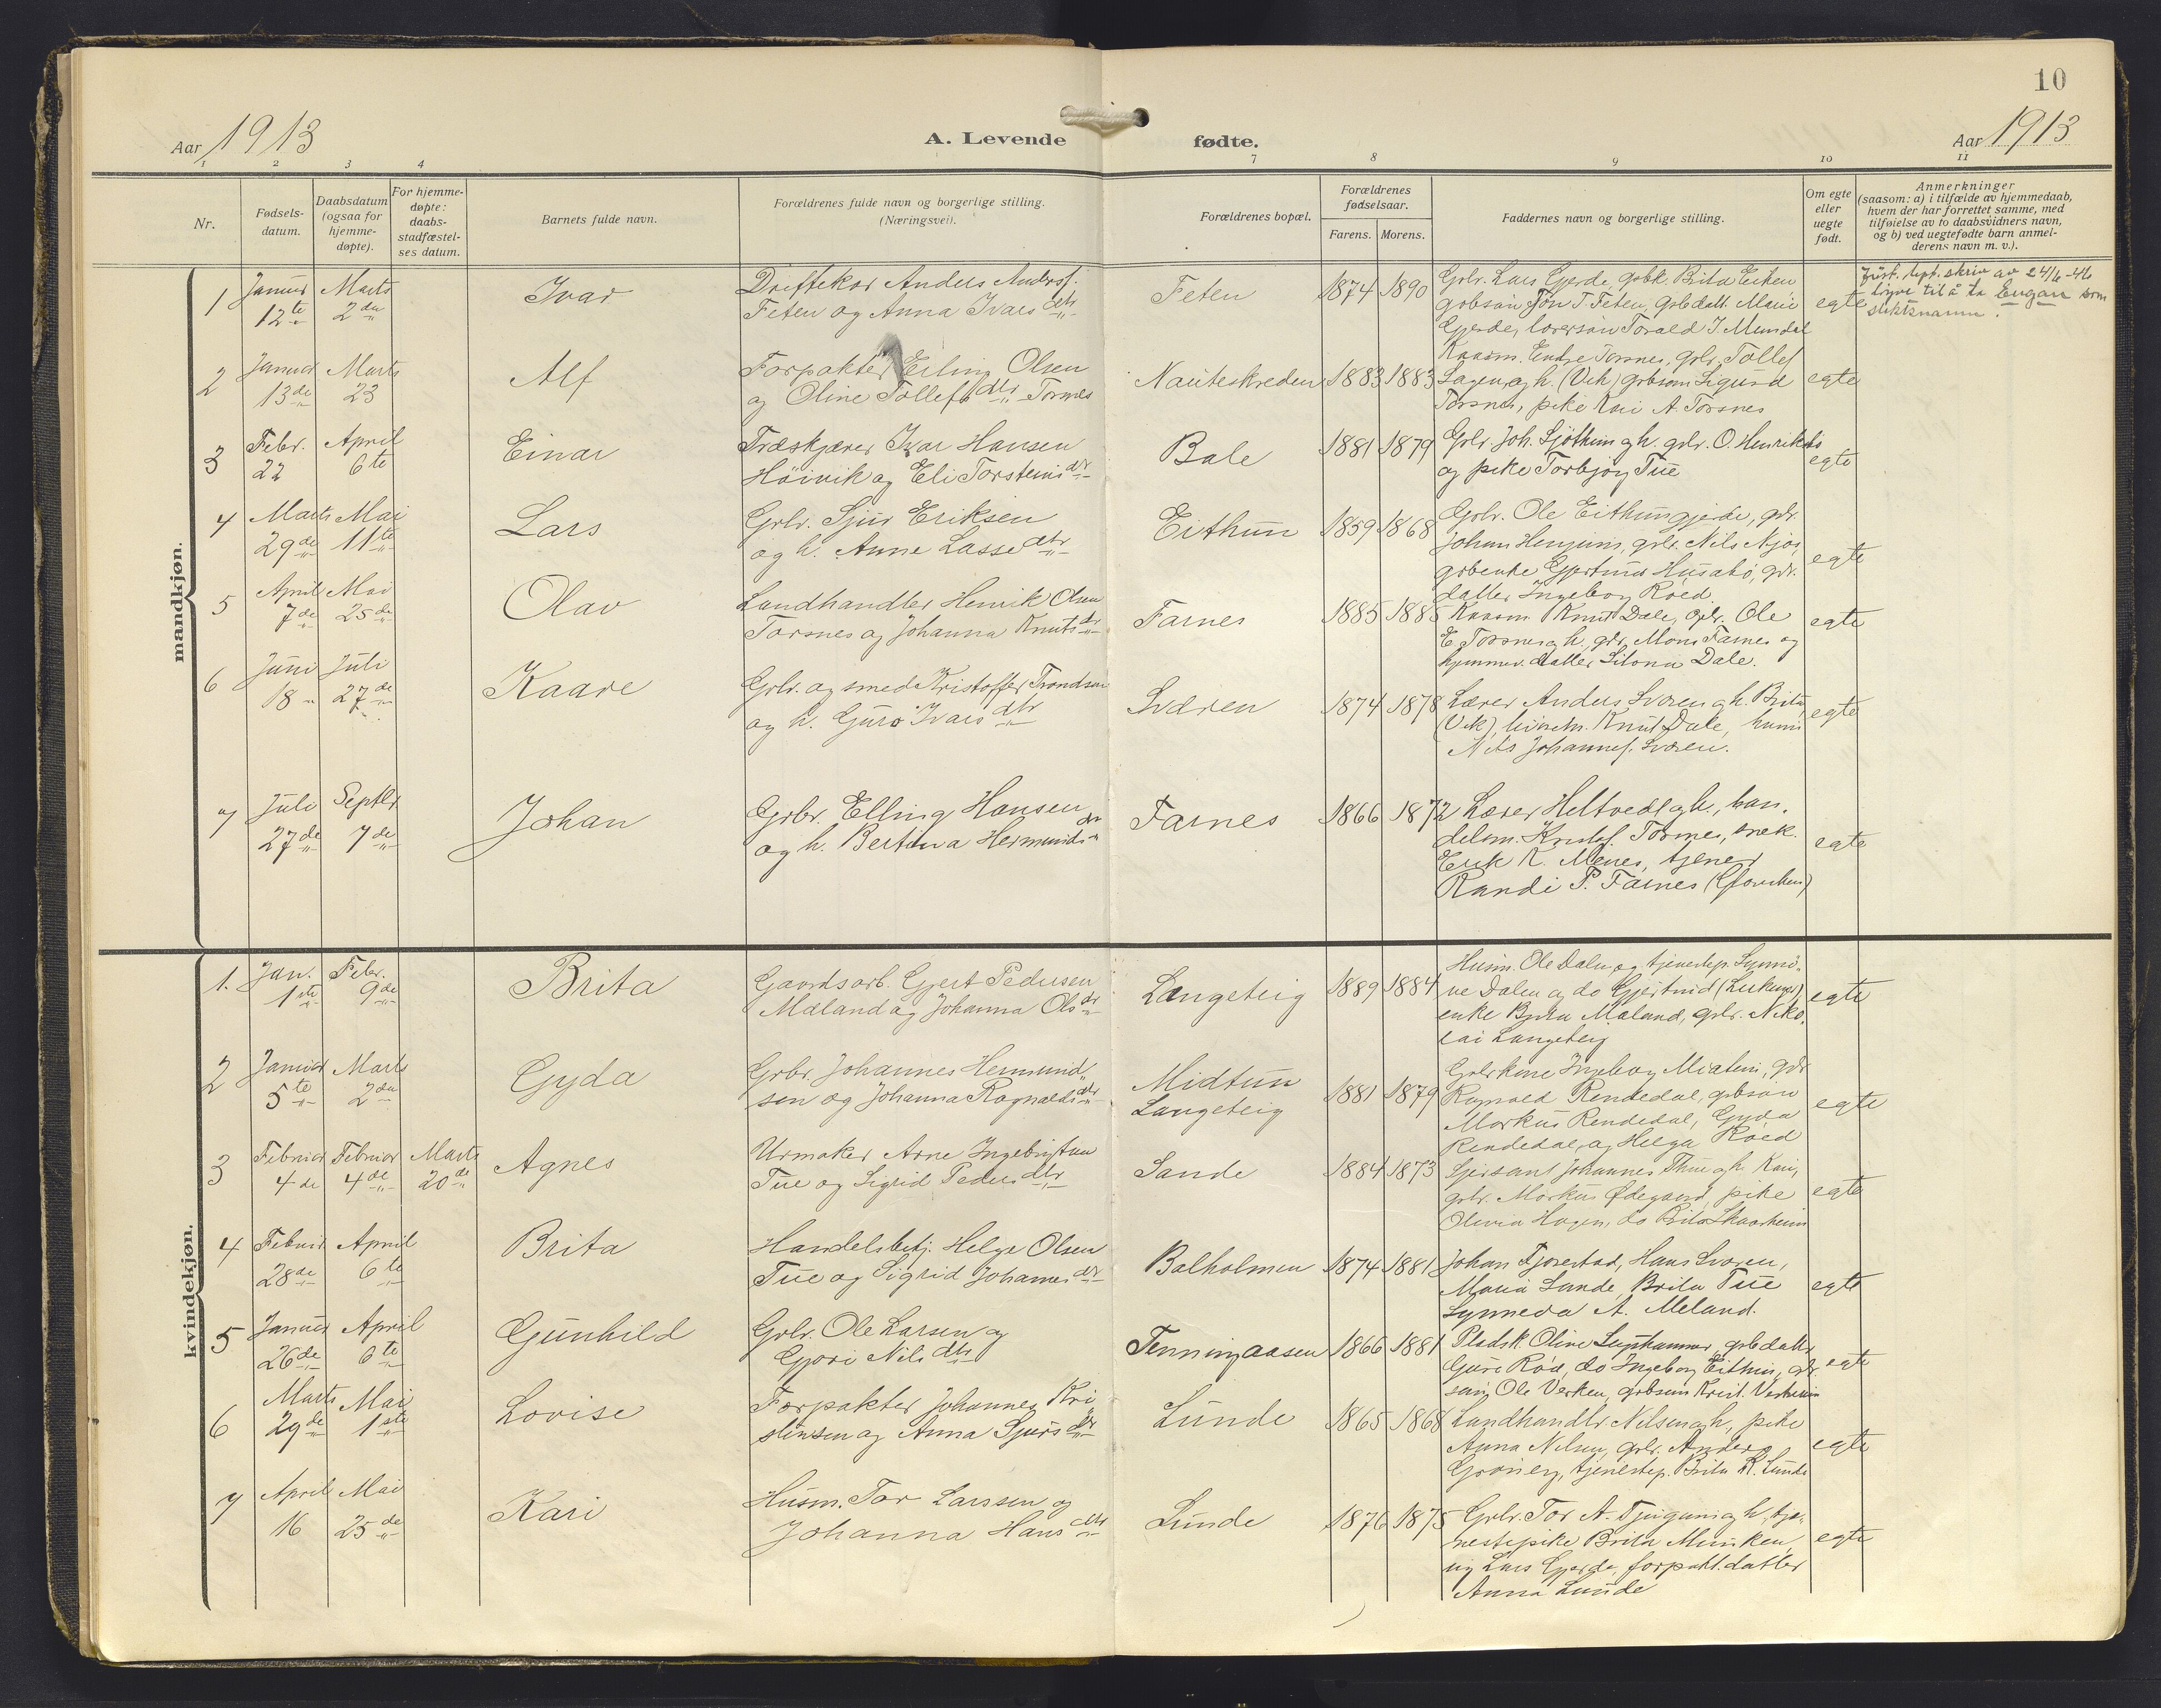 10
Aar 1913
A. Levende fødte.
Aar 1913
1 2 3 4 7 8 9 10 11
Nr.
Fødsels-
datum.
Daabsdatum
(ogsaa for
hjemme-
døpte).
For hjemme-
døpte:
daabs-
stadfæstel-
ses datum.
Barnets fulde navn.
Forældrenes fulde navn og borgerlige stilling.
(Næringsvei).
Forældrenes bopæl.
Forældrenes
fødselsaar.
Farens. Morens.
Faddernes navn og borgerlige stilling.
Om egte
eller
uegte
født.
Anmerkninger
(saasom: a) i tilfælde av hjemmedaab,
hvem der har forrettet samme, med
tilføielse av to daabsvidners navn,
og b) ved uegtefødte barn anmel-
derens navn m. v.).
mandkjøn.
1 Januar 12te Marts 2den
Ivar
Driftekar Anders Andersf.
Feten og Anna Ivarsdtr
Feten
1874 1890
Grbr. Lars Gjerde, gbrk. Brita Eithen
grbsøn Jon T. Feten, grbdatt. Marie
Gjerde, lærersøn Torald J. Mundal
egte
Just. dept. skriv av 24/6-46
løyve til å ta Engan som
slektsnamn.
2 Januar 13de Marts 23
Alf
Forpakter Erling Olsen
og Oline Tollefsdtr Tornes
Nauteskreden
1883 1883
Kaasm. Endre Torsnes, grbr. Tollef
og h. (Vik) grbsøn Sigurd
Torsnes, pike Kari A. Torsnes
egte
3 Febr. 22 April 6te
Einar
Træskjærer Ivar Hansen
Høivik og Eli Torsteinsdtr
Bale
1881 1879
Grbr. Joh. Sjøthun og h. grbr. O. Henriksbø
og pike Torbjørg Tue
egte
4 Marts 29de Mai 11te
Lars
Grbr. Sjur Eriksen
og h. Anne Lassedtr
Eithun
1859 1868
Grbr. Ole Eithungjerde, gbr.
Johan Henjum, grbr. Nils Njøs,
grbenke Gjertrud Husabø, gbr.
datter Ingeborg Røed.
egte
5 April 7de Mai 25de
Olav
Landhandler Henrik Olsen
Torsnes og Johanna Knutsdtr
Farnes
1885 1885
Kaasm Knut Dale, gbr. Ole
E. Torsnes og h., gbr. Mons Farnes og
hjemmev. datter Dale.
egte
6 Juni 18 Juli 27de
Kaare
Grbr. og smed Kristoffer Trondsen
og h. Guro Ivarsdtr
Sværen
1874 1878
Lærer Anders Sværen og h. Brita
(Vik), Knut Dale, husm
Nils Johannesf. Sværen.
egte
7 Juli 27de Septbr 7de
Johan
Grbr. Elling Hansen
og h. Bertina Hermundsdtr
Farnes
1866 1872
Lærer Heltvedt og h., han-
delsm. Kristof. Tornes, snek.
Erik R. Menes, tjener
Randi P. Farnes
egte
kvindekjøn.
1. Jan. 1ste Febr. 9de
Brita
Gaardsarb. Gjert Pedersen
Mæland og Johanna Olsdtr
Langeteig
1889 1884
Husm. Ole Dalen og tjenestep. Synnø-
ve Dalen og do Gjertrud (Leikanger)
enke Brita Mæland, grbr. Niko-
lai Langeteig
egte
2 Januar 5te Marts 2den
Gyda
Grbr. Johannes Hermund-
sen og Johanna Ragnvaldsdtr
Midtun
Langeteig
1881 1879
Grbrkone Ingeborg, gbr
Ragnvald Rendedal, grbsøn
Markus Rendedal, Gyda
Rendedal og Helga Røed
egte
3 Februar 4de Februar 4de Marts 20de
Agnes
Urmaker Arne Ingebrigtsen
Tue og Sigrid Pedersdtr
Sande
1884 1873
Sjersant Johannes Thue og h. Kari,
grbr. Markus Ødegaard, pike
Olivia Hagen, do Brita Skaarheim
egte
4 Februar 28de April 6te
Brita
Handelsbetj. Helge Olsen
Tue og Sigrid Johannesdtr
Balholmen
1874 1881
Johan Fjørestad, Hans Sværen,
Maria Sande, Brita Tue
Synneva A. Meland.
egte
5 Januar 26de April 6te
Gunhild
Grbr. Ole Larsen og
Gjøri Nilsdtr
Tenningaasen
1866 1881
Pladsk. Oline, grbdatter
Guro Røed, do Ingeborg Eithun, gbr.
søn Ole Verken, grbsøn Krist.
egte
6 Marts 29de Mai 1ste
Lovise
Forpakter Johannes Kri-
stensen og Anna Sjursdtr
Lunde
1865 1868
Landhandlr. Nilsen og h., pike
Anna Nilsen, grbr. Anders
tjenestep. Brita K. Lunde
egte
7 April 16 Mai 25de
Kari
Husm. Tor Larssen og
Johanna Hansdtr
Lunde
1876 1875
Grbr. Tor A. Tjugum og h., tje-
nestepike Brita Munken,
ug Lars Gjerde, forpakt.datter
Anna Lunde
egte